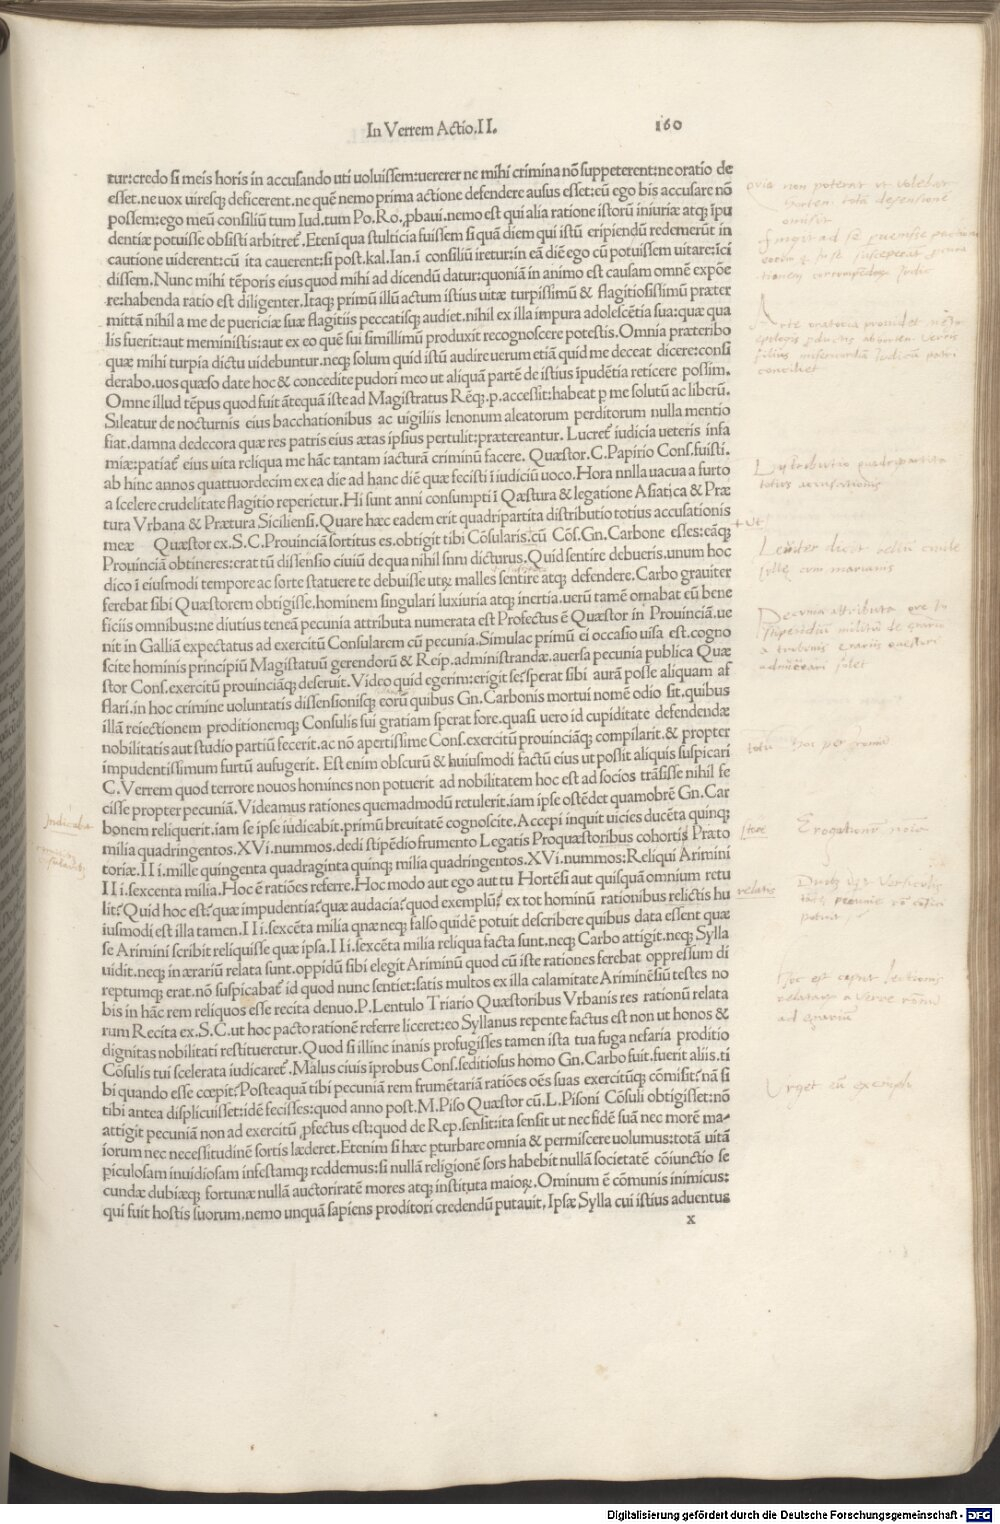 In Verrem Actio.II.
160
tur:credo si meis horis in accusando uti uoluissem:uererer ne mihi crimina nõ suppeterent:ne oratio de
esset.ne uox uiresq; deficerent.ne quẽ nemo prima actione defendere ausus esset:eũ ego bis accusare nõ
possem:ego meũ consiliũ tum Iud.tum Po.Ro.ꝓbaui.nemo est qui alia ratione istorũ iniuriæ atq; ĩpu
dentiæ potuisse obsisti arbitret᷑.Etenĩ qua stulticia fuissem si quã diem qui istũ eripiendũ redemerũt in
cautione uiderent:cũ ita cauerent:si post.kal.Ian.ĩ consiliũ iretur:in eã diẽ ego cũ potuissem uitare:ĩci
dissem.Nunc mihi tẽporis eius quod mihi ad dicendũ datur:quoniã in animo est causam omnẽ expõe
re:habenda ratio est diligenter.Itaq; primũ illũ actum istius uitæ turpissimũ & flagitiosissimũ præter
mittã nihil a me de puericiæ suæ flagitiis peccatisq; audiet.nihil ex illa impura adolescẽtia sua:quæ qua
lis fuerit:aut meministis:aut ex eo quẽ sui simillimũ produxit recognoscere potestis.Omnia præteribo
quæ mihi turpia dictu uidebuntur.neq; solum quid istũ audire uerum etiã quid me deceat dicere:consi
derabo.uos quæso date hoc & concedite pudori meo ut aliquã partẽ de istius ĩpudẽtia reticere possim.
Omne illud tẽpus quod fuit ãtequã iste ad Magistratus Rẽq; p.accessit:habeat p me solutũ ac liberũ.
Sileatur de nocturnis eius bacchationibus ac uigiliis lenonum aleatorum perditorum nulla mentio
fiat.damna dedecora quæ res patris eius ætas ipsius pertulit:prætereantur. Lucret᷑ iudicia ueteris infa
miæ:patiat᷑ eius uita reliqua me hãc tantam iacturã criminũ facere. Quæstor.C.Papirio Cons.fuisti.
ab hinc annos quattuordecim ex ea die ad hanc diẽ quæ fecisti ĩ iudiciũ uoco.Hora nnlla uacua a furto
a scelere crudelitate flagitio reperietur.Hi sunt anni consumpti ĩ Qæstura & legatione Asiatica & Præ
tura Vrbana & Prætura Siciliensi.Quare hæc eadem erit quadripartita distributio totius accusationis
meæ Quæstor ex.S.C.Prouinciã sortitus es.obtigit tibi Cõsularis.cũ Cõs.Gn.Carbone esses:eãq;
Prouinciã obtineres:erat tũ dissensio ciuiũ de qua nihil snm dicturus.Quid sentire debueris.unum hoc
dico ĩ eiusmodi tempore ac sorte statuere te debuisse utrꝫ malles sentire atq; defendere.Carbo grauiter
ferebat sibi Quæstorem obtigisse.hominem singulari luxuria atq; inertia.uerũ tamẽ ornabat eũ bene
ficiis omnibus:ne diutius teneã pecunia attributa numerata est Profectus ẽ Quæstor in Prouinciã.ue
nit in Galliã expectatus ad exercitũ Consularem cũ pecunia.Simulac primũ ei occasio uisa est.cogno
scite hominis principiũ Magistatuũ gerendorũ & Reip.administrandæ.auersa pecunia publica Quæ
stor Cons.exercitũ prouinciãq; deseruit.Video quid egerim:erigit se?.sperat sibi aurã posse aliquam af
flari.in hoc crimine uoluntatis dissensionisq; eorũ quibus Gn.Carbonis mortui nomẽ odio sit.quibus
illã reiectionem proditionemq; Consulis sui gratiam sperat fore.quasi uero id cupiditate defendendæ
nobilitatis aut studio partiũ fecerit.ac nõ apertissime Cons.exercitũ prouinciãq; compilarit.& propter
impudentissimum furtũ aufugerit. Est enim obscurũ & huiusmodi factũ eius ut possit aliquis suspicari
C.Verrem quod terrore nouos homines non potuerit ad nobilitatem hoc est ad socios trãsisse nihil fe
cisse propter pecuniã.Videamus rationes quemadmodũ retulerit.iam ipse ostẽdet quamobrẽ Gn.Car
bonem reliquerit.iam se ipse iudicabit.primũ breuitatẽ cognoscite.Accepi inquit uicies ducẽta quinq;
milia quadringentos.XVi.nummos.dedi stipẽdio frumento Legatis Proquæstoribus cohorti Præto
toriæ.IIi.mille quingenta quadraginta quinq; milia quadringentos.XVi.nummos:Reliqui Arimini
IIi.sexcenta milia.Hoc ẽ ratiões referre.Hoc modo aut ego aut tu Hortẽsi aut quisquã omnium retu
lit?Quid hoc est?quæ impudentia?quæ audacia?quod exemplũ? ex tot hominũ rationibus relictis hu
iusmodi est illa tamen.IIi.sexcẽta milia qnæ neq; falso quidẽ potuit describere quibus data essent quæ
se Arimini scribit reliquisse quæ ipsa.IIi.sexcẽta milia reliqua facta sunt.neq; Carbo attigit.neq; Sylla
uidit.neq; in ærariũ relata sunt.oppidũ sibi elegit Ariminũ quod cũ iste rationes ferebat oppressum di
reptumq; erat.nõ suspicabat᷑ id quod nunc sentiet:satis multos ex illa calamitate Ariminẽsiũ testes no
bis in hãc rem reliquos esse recita denuo.P.Lentulo Triario Quæstoribus Vrbanis res rationũ relata
rum Recita ex.S.C.ut hoc pacto rationẽ referre liceret:eo Syllanus repente factus est non ut honos &
dignitas nobilitati restitueretur.Quod si illinc inanis profugisses tamen ista tua fuga nefaria proditio
Cõsulis tui scelerata iudicaret᷑.Malus ciuis ĩprobus Cons.seditiosus homo Gn.Carbo fuit.fuerit aliis.ti
bi quando esse cœpit?Posteaquã tibi pecuniã rem frumẽtariã ratiões oẽs suas exercitũq; cõmisit?nã si
tibi antea displicuisset:idẽ fecisses:quod anno post.M.Piso Quæstor cũ.L.Pisoni Cõsuli obtigisset:nõ
attigit pecuniã non ad exercitũ ꝓfectus est:quod de Rep.sensit:ita sensit ut nec fidẽ suã nec morẽ ma-
iorum nec necessitudinẽ sortis læderet.Etenim si hæc pturbare omnia & permiscere uolumus:totã uitã
piculosam inuidiosam infestamq; reddemus:si nullã religionẽ sors habebit nullã societatẽ cõiunctio se
cundæ dubiæq; fortunæ nullã auctoriratẽ mores atq; instituta maioꝝ.Ominum ẽ cõmunis inimicus:
qui fuit hostis suorum.nemo unquã sapiens proditori credendũ putauit.Ipsæ Sylla cui istius aduentus
x
Digitalisierung gefördert durch die Deutsche Forschungsgemeinschaft - DFG